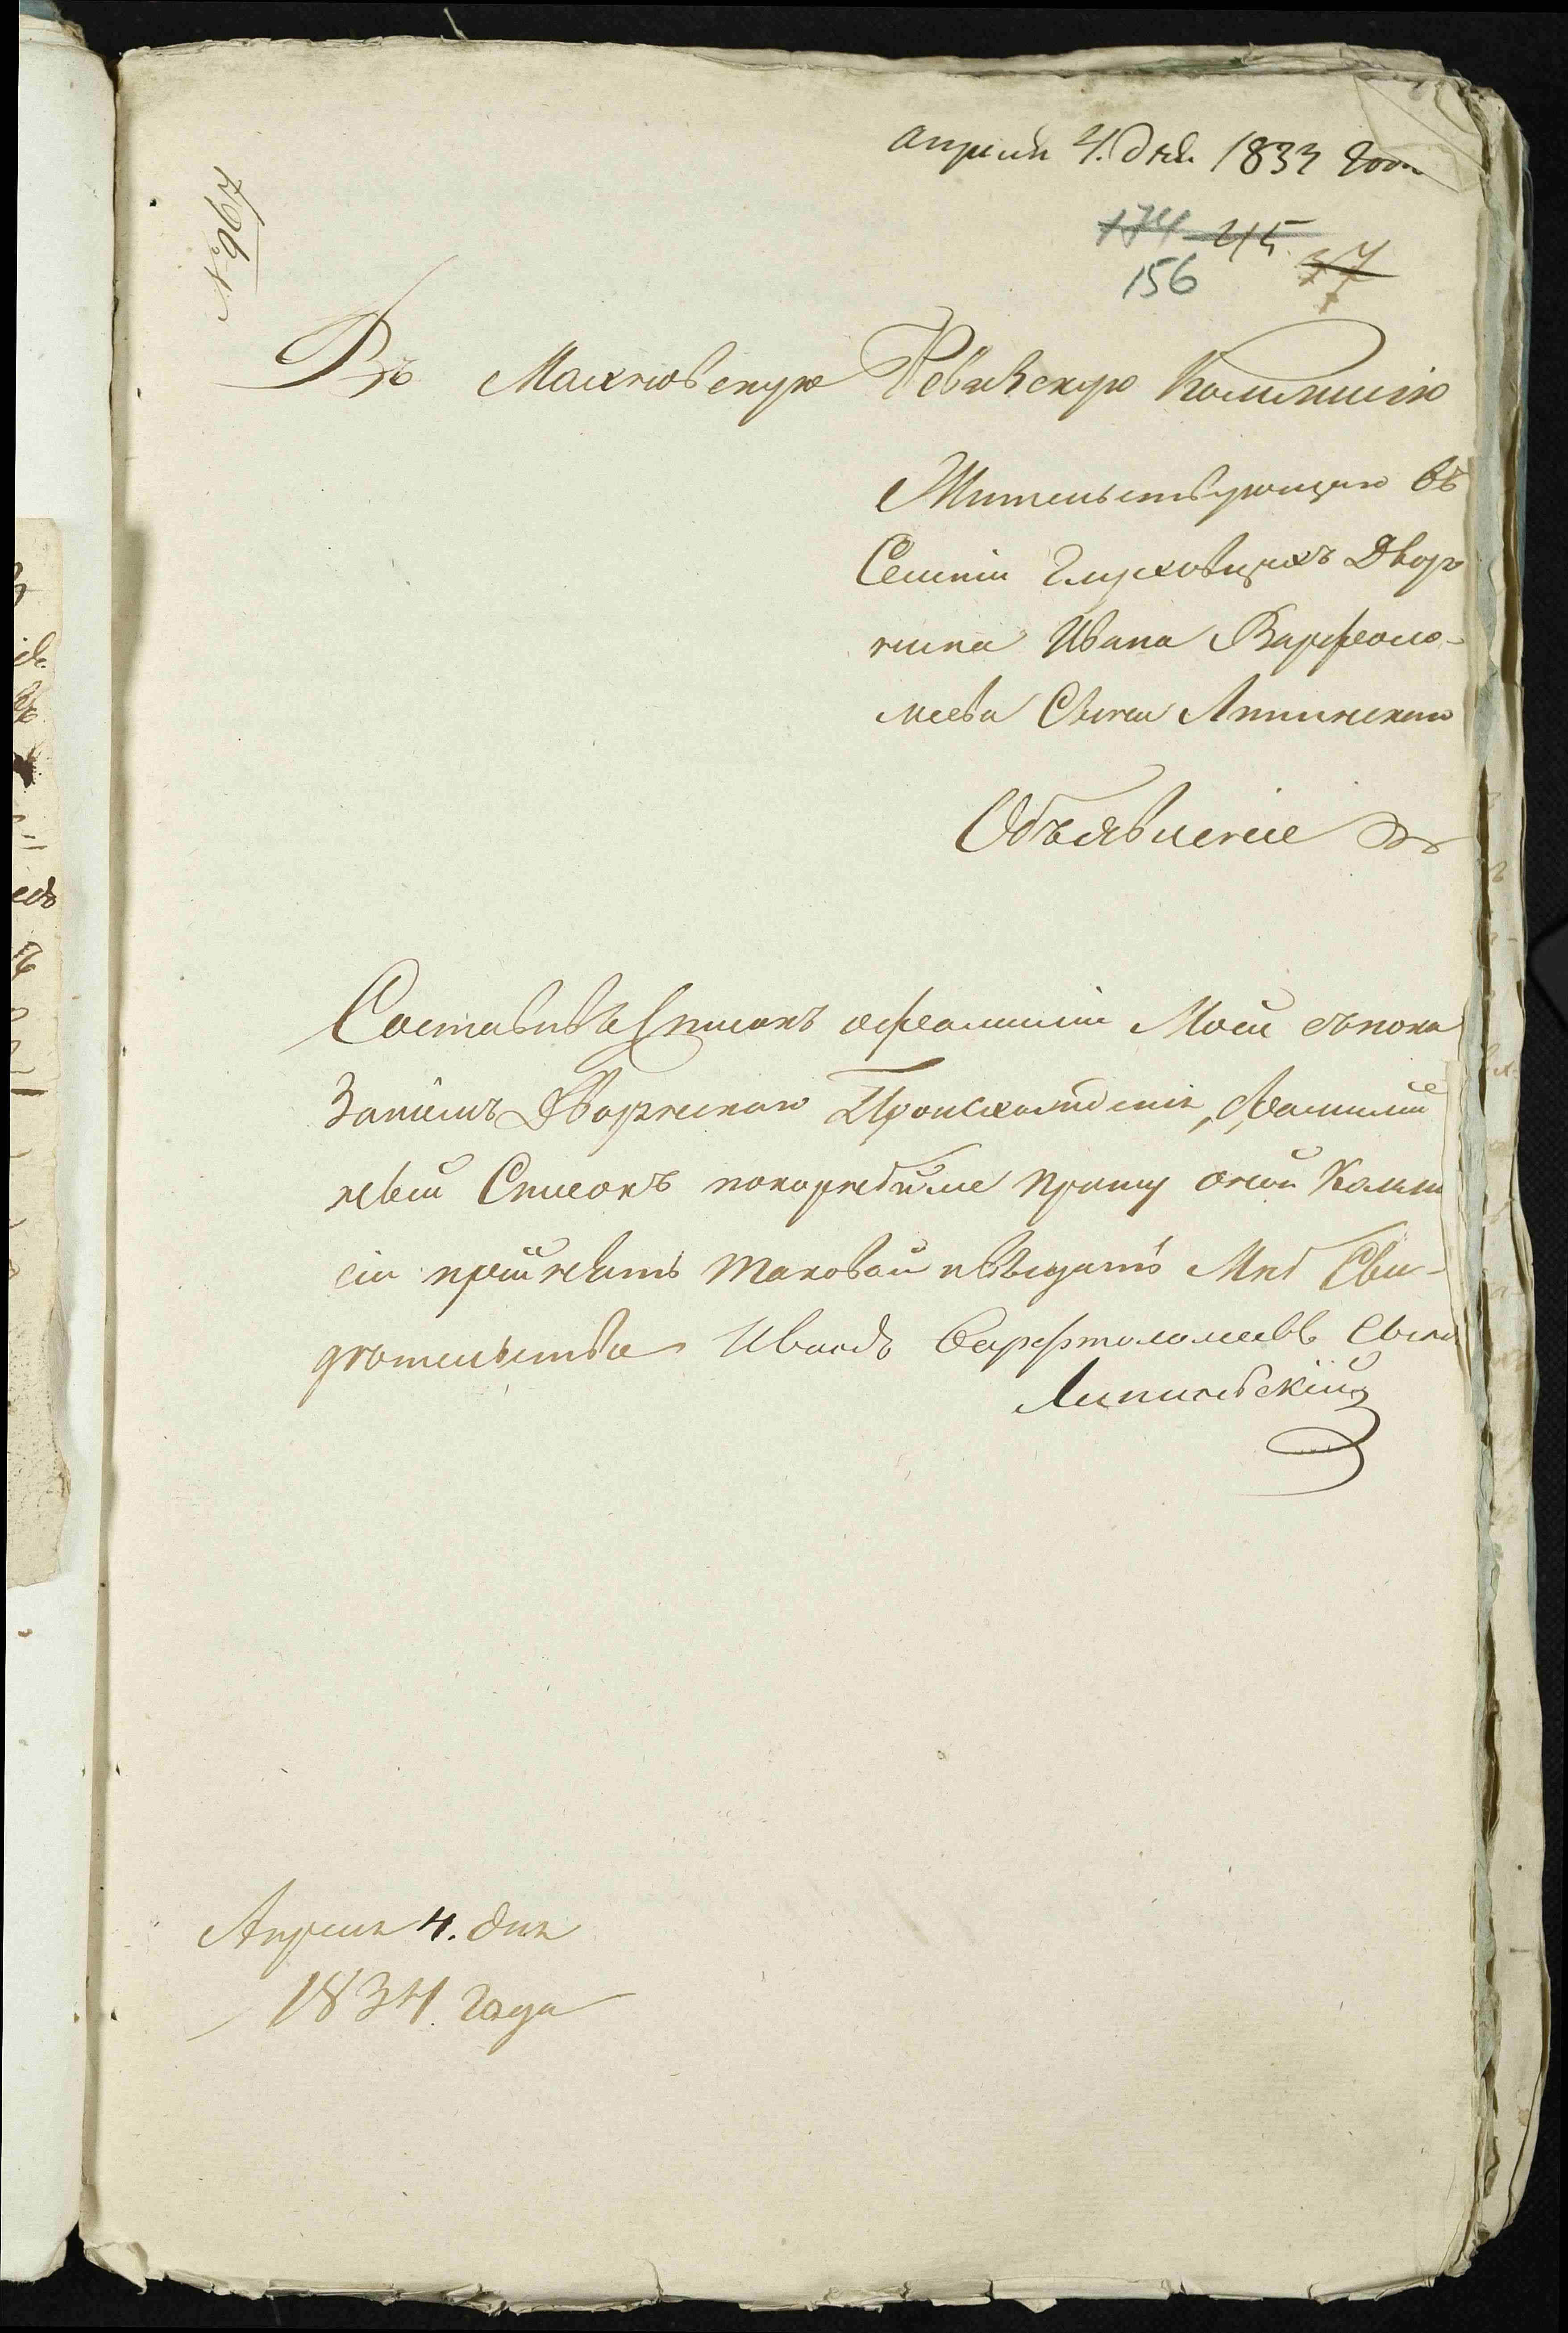 Апреля 4. дня 1834 года
№ 967
174 45 37
156
Въ Махновскую Ревизскую Коммисію
Жительствующаго въ
Селеніи Глуховцахъ Дворя
нина Ивана Варфоло-
меева Сына Липинского
Объявленіе
Составивъ Списокъ офамиліи Моей съпока
заніемъ Дворянского Происхожденія, Фамилій
ный Списокъ покорнѣйше прошу оной Комми
сіи принять таковой ивыдать Мнѣ Сви-
дѣтельство Иванъ Варфтоломеевъ Сынъ
Липинскій
Апреля 4. дня
1834 года